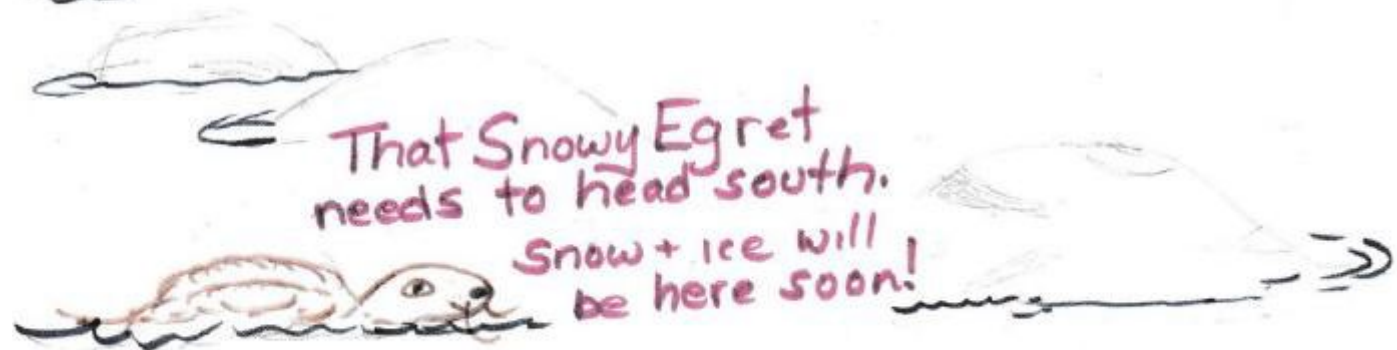 That Snowy Egret
needs to head south.
Snow + ice will
be here soon!